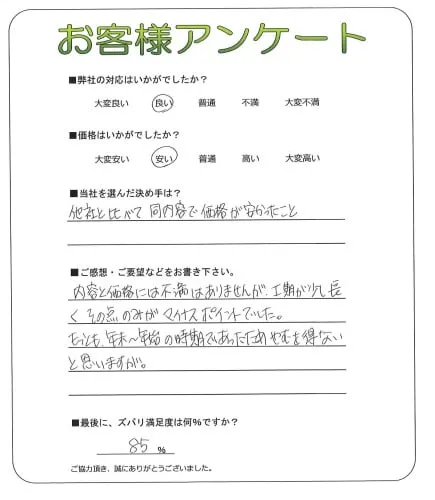 お客様アンケート
■弊社の対応はいかがでしたか?
大変良い 良い 普通 不満 大変不満
■価格はいかがでしたか?
大変安い 安い 普通 高い 大変高い
■当社を選んだ決め手は?
他社と比べて同内容で価格が安かったこと
■ご感想・ご要望などをお書き下さい。
内容と価格には不満はありませんが、工期が少し長
く その点のみがマイナスポイントでした。
もっとも、年末~年始の時期であったためやむを得ない
と思いますが。
■最後に、ズバリ満足度は何%ですか?
85 %
ご協力頂き、誠にありがとうございました。